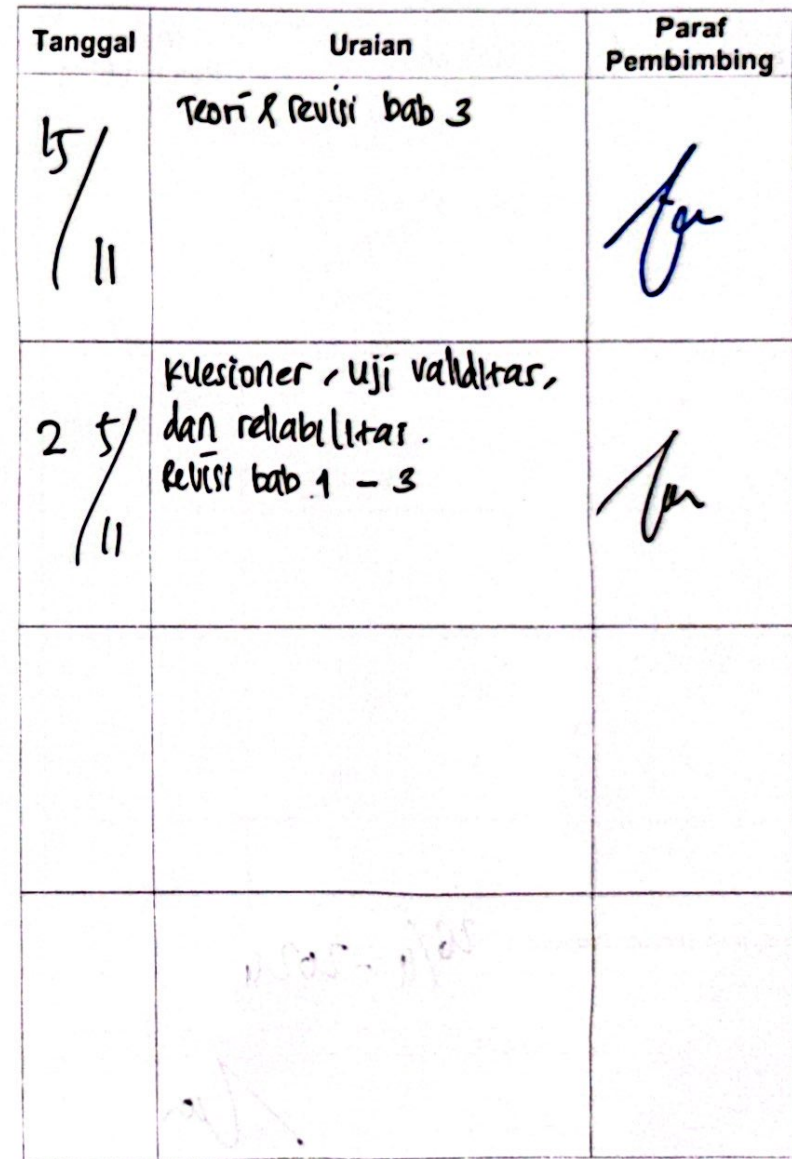 Tanggal
Uraian
Paraf
Pembimbing
15/11
Teori & revisi bab 3
25/11
kuesioner, uji validitas,
dan reliabilitas.
Revisi bab 1 - 3